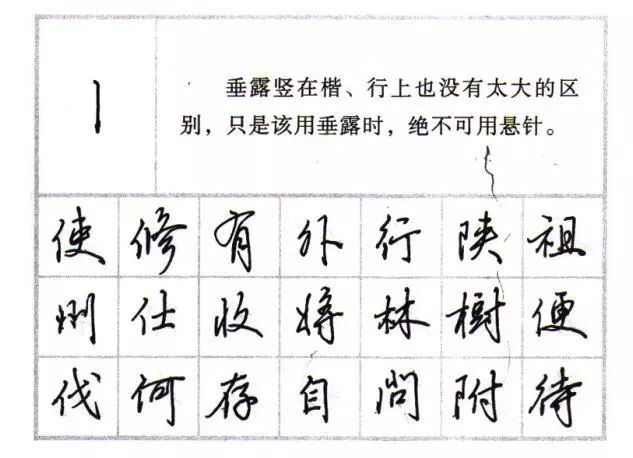 垂露竖在楷、行上也没有太大的区
别，只是该用垂露时，绝不可用悬针。
使修有外行陕祖
州仕收将林树便
伐何存自问附待